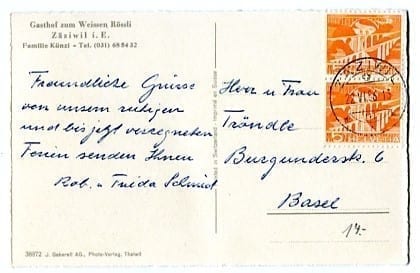 Gasthof zum Weissen Rössli
Zäziwil i. E.
Familie Künzi - Tel. (031) 68 54 32
Freundliche Grüsse
von unsern ruhigen
und bis jetzt verregneten
Ferien senden Ihnen
Rob. u Frieda Schmid
Printed in Switzerland - Imprimé en Suisse
Herr u Frau
Tröndle
Burgunderstr. 6
Basel
14.-
ZÄZIWIL
5
38972 J. Gaberell AG., Photo-Verlag, Thalwil